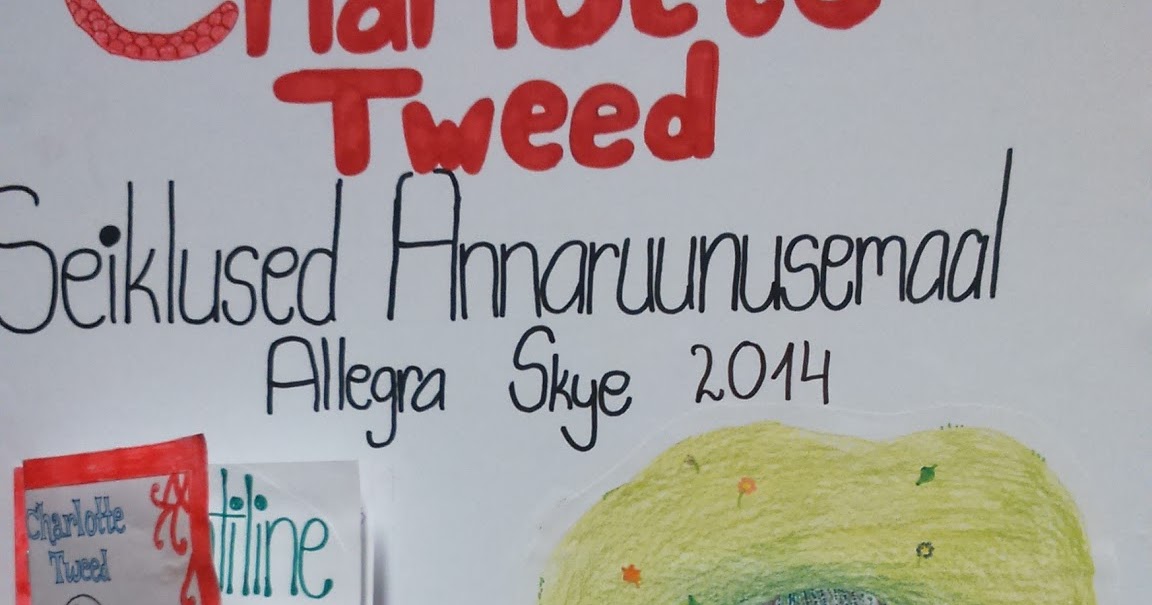 Charlotte
Tweed
Seiklused Annaruunusemaal
Allegra Skye 2014
Charlotte
Tweed
tiline